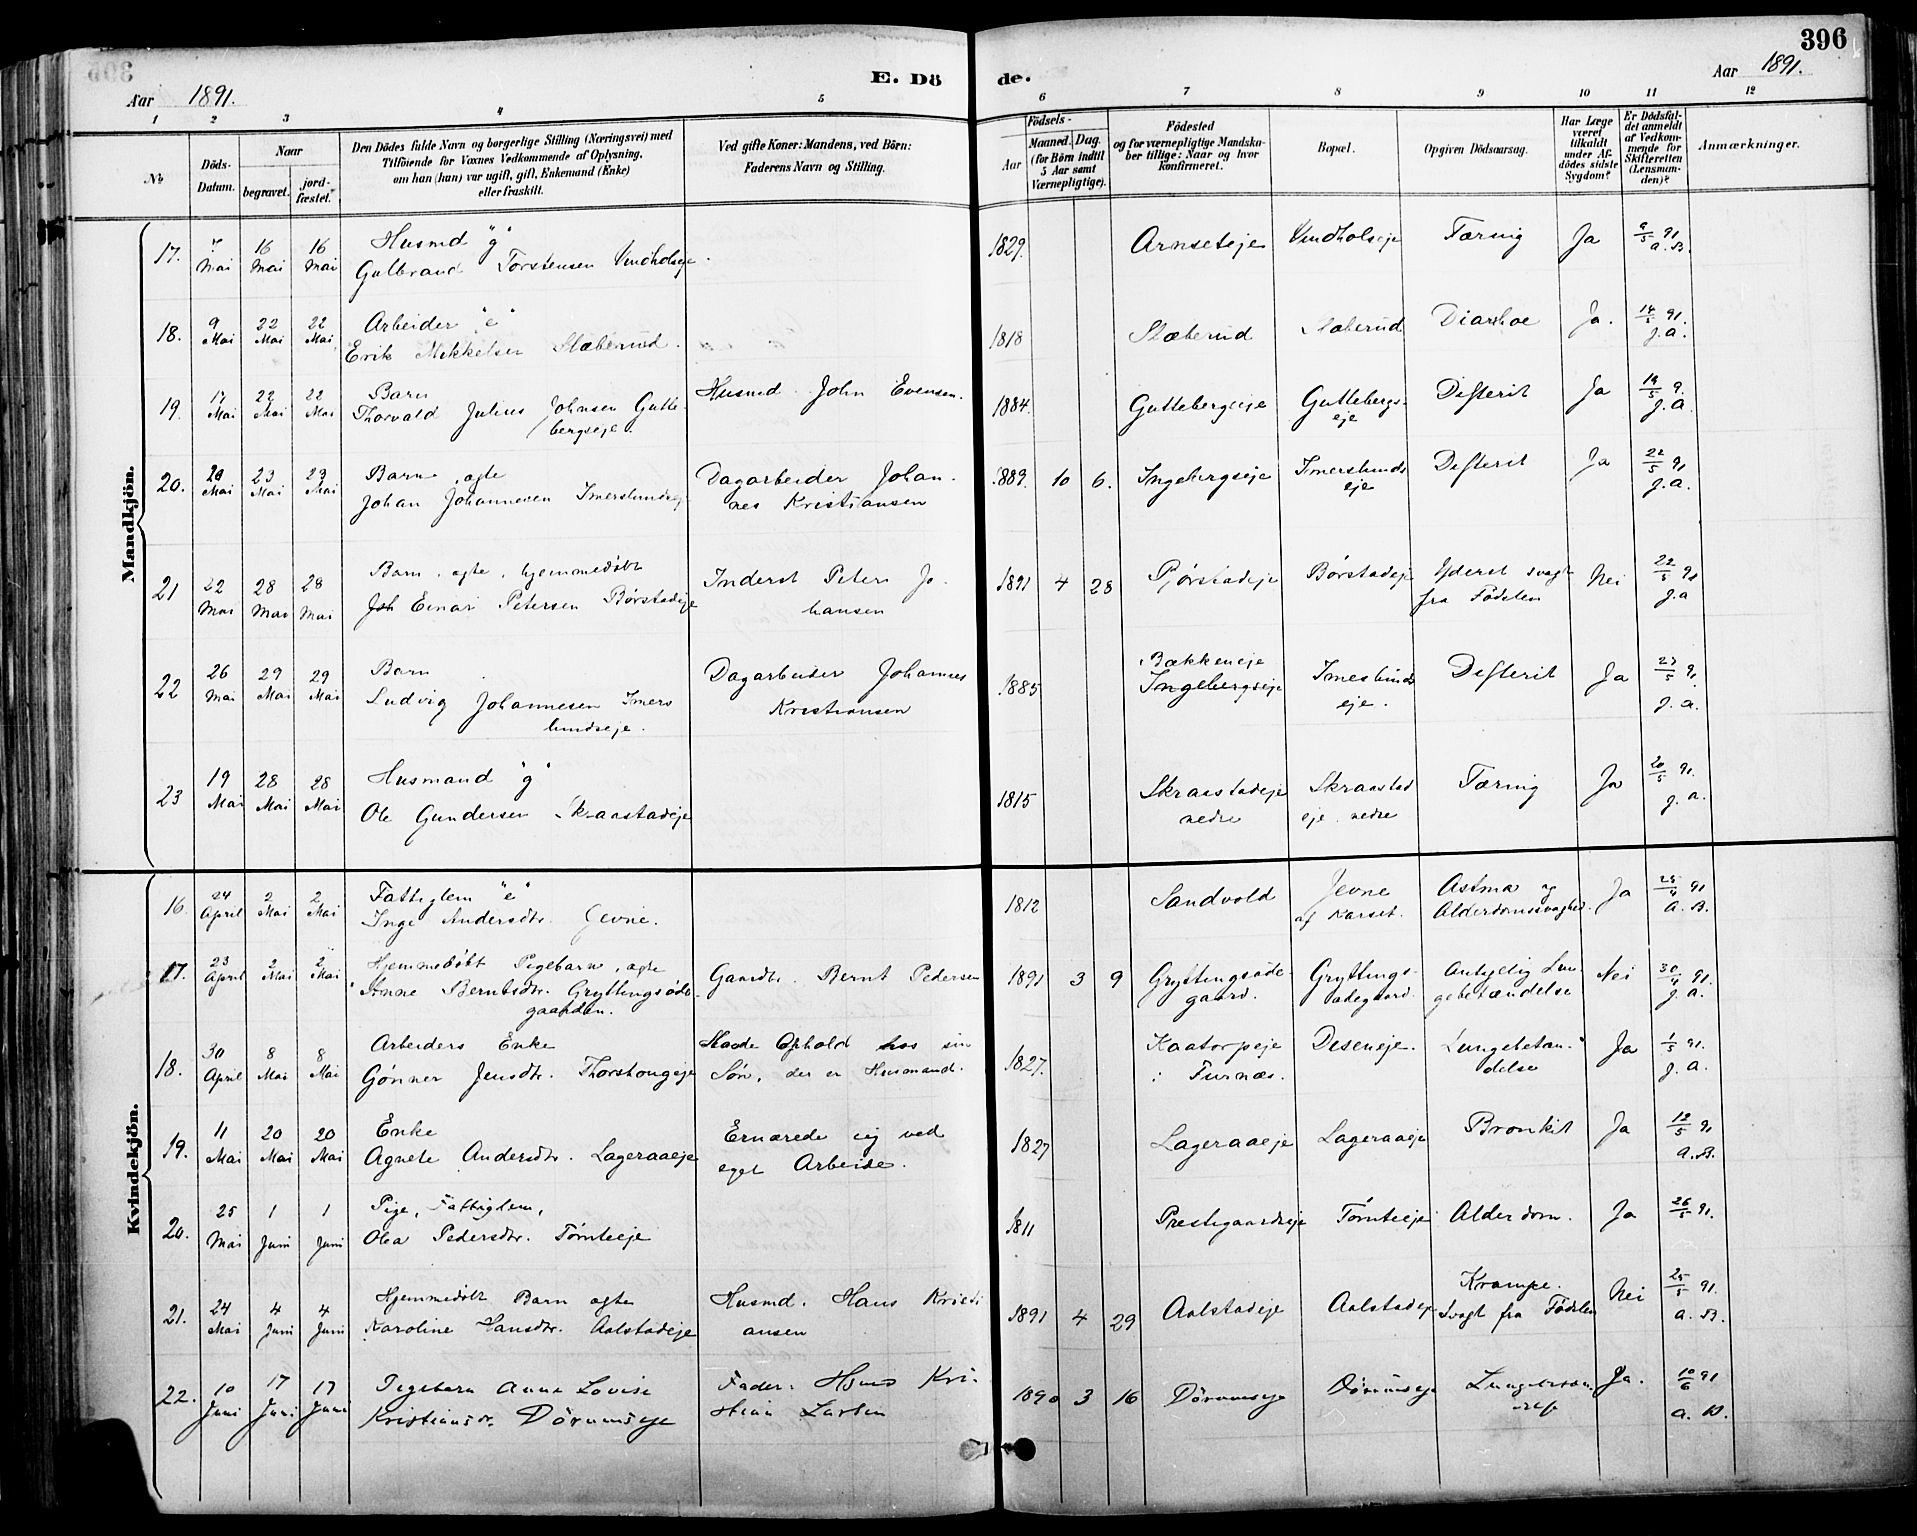 396
Aar 1891.
E. Dö
de.
Aar 1891.
1 2 3 4 5 6 7 8 9 10 11 12
No
Döds-Datum.
Naar
begravet.
jord-fæstet.
Den Dödes fulde Navn og borgerlige Stilling (Næringsvei) med
Tilföiende for Voxnes Vedkommende af Oplysning,
om han (hun) var ugift, gift, Enkemand (Enke)
eller fraskilt.
Ved gifte Koner: Mandens, ved Börn:
Faderens Navn og Stilling.
Födsels-
Aar
Maaned. Dag.
(for Börn indtil
5 Aar samt
Værnepligtige).
Födested
og for værnepligtige Mandska-
ber tillige: Naar og hvor
konfirmeret.
Bopæl.
Opgiven Dödsaarsag.
Har Læge
været
tilkaldt
under Af-
dödes sidste
Sygdom?
Er Dödsfal-
det anmeldt
af Vedkom-
mende for
Skifteretten
(Lensman-
den)?
Anmærkninger.
Mandkjön.
17. 7 Mai 16 Mai 16 Mai Husmd "g"
Gulbrand Torstensen Vindholseje. 1829. Arnseteje Vindholseje Tæring Ja 9/5 91. A.B.
18. 9 Mai 22 Mai 22 Mai Arbeider "e"
Erik Mikkelsen Stæberud. 1818 Stæberud Stæberud Diarrhoe Ja. 14/5 91. J.A.
19. 17 Mai 22 Mai 22 Mai Barn
Thorvald Julius Johnsen Gutte-
bergseje. Husmd. John Evensen. 1884. Guttebergseje Guttebergs-
eje Difterit Ja 19/5 9. J.A.
20. 20 Mai 23 Mai 23 Mai Barn, ægte
Johan Johannesen Imerslundseje Dagarbeider Johan-
nes Kristiansen 1889. 10 6. Ingebergseje Imerslunds
eje Difterit Ja 22/5 91 J.A.
21 22 Mai 28 Mai 28 Mai Barn, ægte, hjemmedøbt
Einar Petersen Børstadeje Inderst Peter Jo-
hansen 1891 4 28 Børstadeje Yderst svagt
fra Födslen Nei 22/5 91 J.A
22 26 Mai 29 Mai 29 Mai Barn
Ludvig Johannesen Imers
lundseje. Dagarbeider Johannes
Kristiansen 1885 Bækkeneje
Ingebergseje Imerslunds
eje. Difterit Ja 27/5 91 J.A.
23 19 Mai 28 Mai 28 Mai Husmand "g"
Ole Gundersen Skraastadeje 1815 Skraastadeje
nedre Skraastad
eje nedre Tæring Ja 20/5 91. J.A.
Kvindekjön.
16. 24 April 2 Mai 2 Mai Fattiglem "e"
Inge Andersdtr. Jevne. 1812 Sandvold Jevne
af Karset. Astma og
Alderdomssvaghed. Ja 25/4 91 A.B.
17. 23 April 2 Mai 2 Mai Hjemmedøbt Pigebarn, ægte
Anne Berntsdtr. Gryttingsøde-
gaarden. Gaardbr. Bernt Pedersen 1891 3 9 Gryttingsøde-
gaard. Gryttings-
ødegaard. Antagelig Lun-
gebetændelse Nei 30/4 91. J.A.
18. 30 April 8 Mai 8 Mai Arbeiders Enke
Gønner Jensdtr. Thorstongeje Havde Ophold hos sin
Søn, der er Husmand. 1827. Kaatorpeje
i Furnæs. Deseneje. Lungebetæn-
delse Ja 1/5 91. J.A.
19. 11 Mai 20 Mai 20 Mai Enke
Agnete Andersdtr. Lageraaeje Ernærede sig ved
eget Arbeide. 1827 Lageraaeje Lageraaeje Bronkit Ja 12/5 91 A.B.
20. 25 Mai 1 Juni 1 Juni Pige, Fattiglem,
Olea Pedersdtr. Tømteeje 1811 Prestegaardseje Tømteeje Alderdom. Ja 26/5 91.
21. 24 Mai 4 Juni 4 Juni Hjemmedøbt Barn ægte
Karoline Hansdtr. Aalstadeje Husmd. Hans Kristi
ansen 1891 4 29 Aalstadeje Aalstadeje Krampe.
Svagt fra Fødslen Nei 25/5 91. A.B.
22. 10 Juni 17 Juni 17 Juni Pigebarn Anne Lovise
Kristiansdr. Dørumseje Fader: Kri-
stian Larsen 1890 3 16 Dørumseje Dørumseje Ja. 10/6 91 A.B.